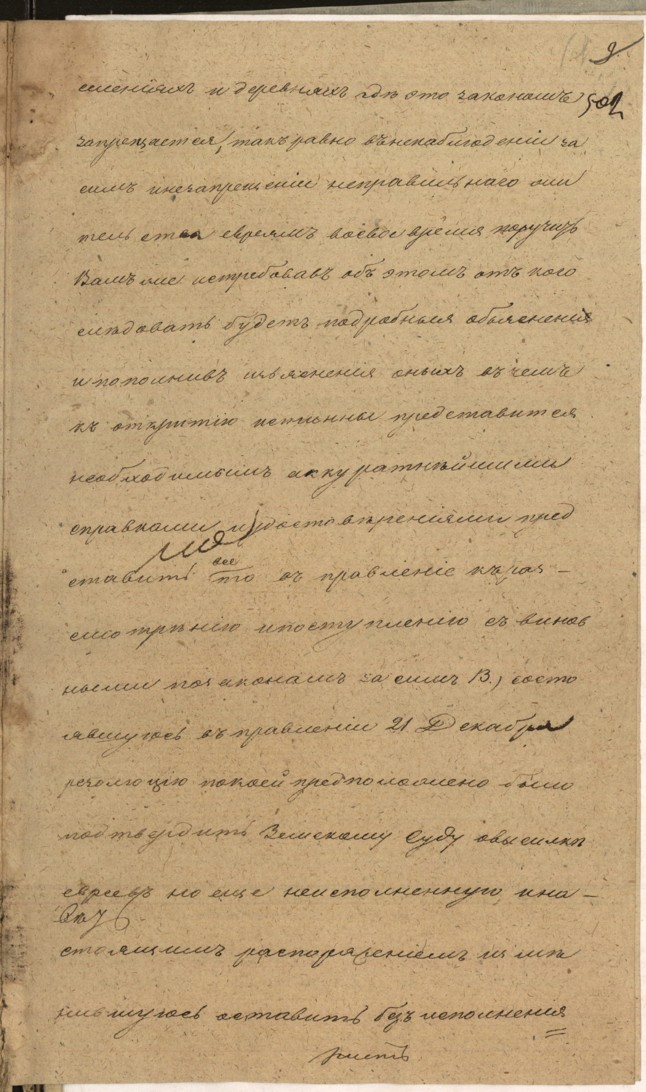 9
502
селенiяхъ и деревняхъ гдѣ это законамъ
запрещается, такъ равно въ ненаблюденiи за
симъ и незапрещенiи неправильнаго жи
тельства евреямъ во свое время поручить
Вамъ же истребовавъ объ этомъ отъ кого
слѣдовать будетъ подробныя объясненiя
и пополнивъ изъясненiя оныхъ въ чемъ
къ открытiю истинны представится
необходимымъ аккуратнѣйшими
справками и удостовѣренiями пред
все
ставить то въ правленiе къ раз-
смотрѣнiю и поступленiю съ винов
ными по законамъ за симъ В.) состо
явшуюсь въ правленiи 21 Декабря
резолюцiю по коей предположено было
подтвердить Земскому Суду о высылкѣ
евреевъ но еще неисполненную и на-
стоящимъ распоряженiемъ измѣ
нившуюсь оставить безъ исполненiя